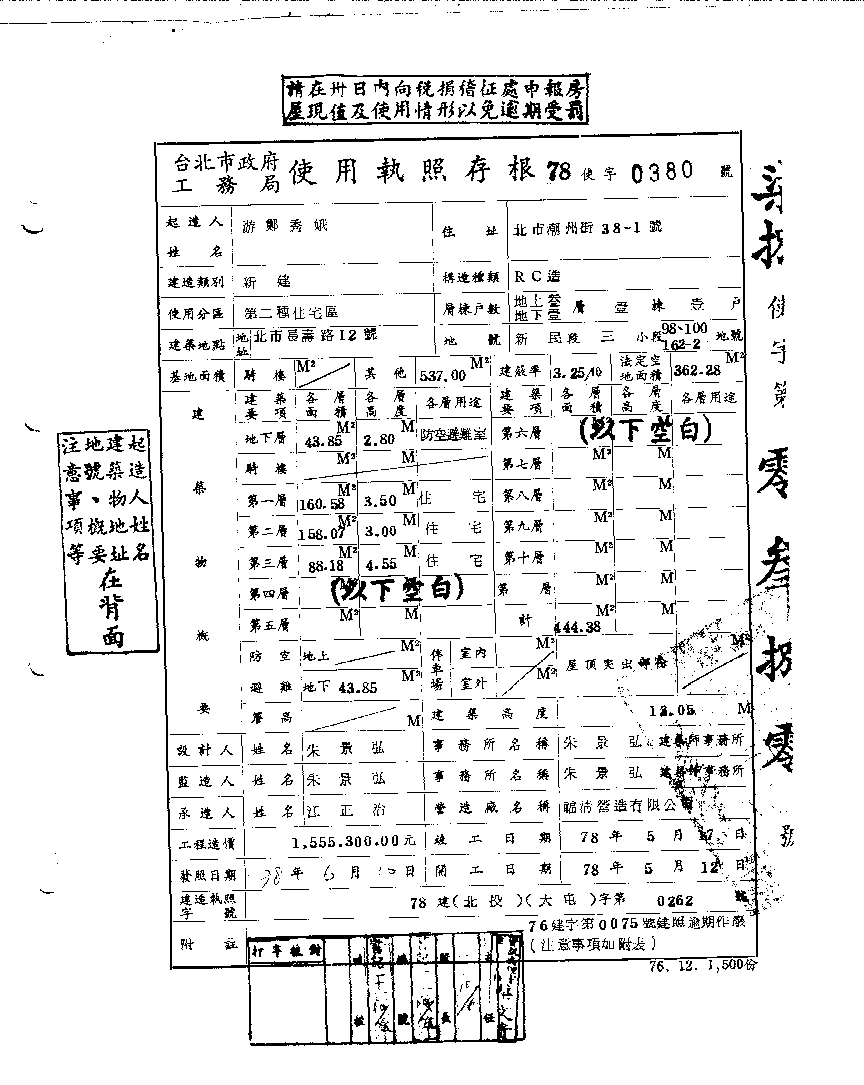 請在卅日內向稅捐稽征處申報房
屋現值及使用情形以免逾期受罰
台北市政府
工務局
使用執照存根 78 使字 0380 號
起造人姓名 游鄭秀娥 住址 北市潮州街38-1號
建造類別 新建 構造種類 RC造
使用分區 第二種住宅區 層棟戶數 地上叁 地下壹 層壹棟壹戶
建築地點 地址 北市長壽路12號 地號 新民段三小段 98、100 162-2 地號
基地面積 騎樓 M² 其他 537.00 M² 建蔽率 3.25/10 法定空地面積 362.28 M²
建築要項 各層面積 各層高度 各層用途 建築要項 各層面積 各層高度 各層用途
地下層 43.85 M² 2.80 M 防空避難室 第六層 (以下空白)
騎樓 M² M 第七層 M² M
第一層 160.58 M² 3.50 M 住宅 第八層 M² M
第二層 158.07 M² 3.00 M 住宅 第九層 M² M
第三層 88.18 M² 4.55 M 住宅 第十層 M² M
第四層 (以下空白) 第 層 M² M
第五層 M² M 計 444.38 M² M
建築物概要
防空避難 地上 M² 停車場 室內 M² 屋頂突出部份 M²
地下 43.85 室外 M²
簷高 M 建築高度 12.05 M
設計人 姓名 朱景弘 事務所名稱 朱景弘建築師事務所
監造人 姓名 朱景弘 事務所名稱 朱景弘建築師事務所
承造人 姓名 江正治 營造廠名稱 營造有限公
工程造價 1,555.300.00元 竣工日期 78年5月 日
發照日期 78年6月10日 開工日期 78年5月12日
建造執照字號 78建(北投)(大屯)字第 0262 號
附註 76建字第0075號建照逾期作廢
(注意事項如附表)
76.12.1,500份
打字校對
起造人姓名
建築物地址
地號、概要
注意事項等
在背面
使字第零叁捌零號